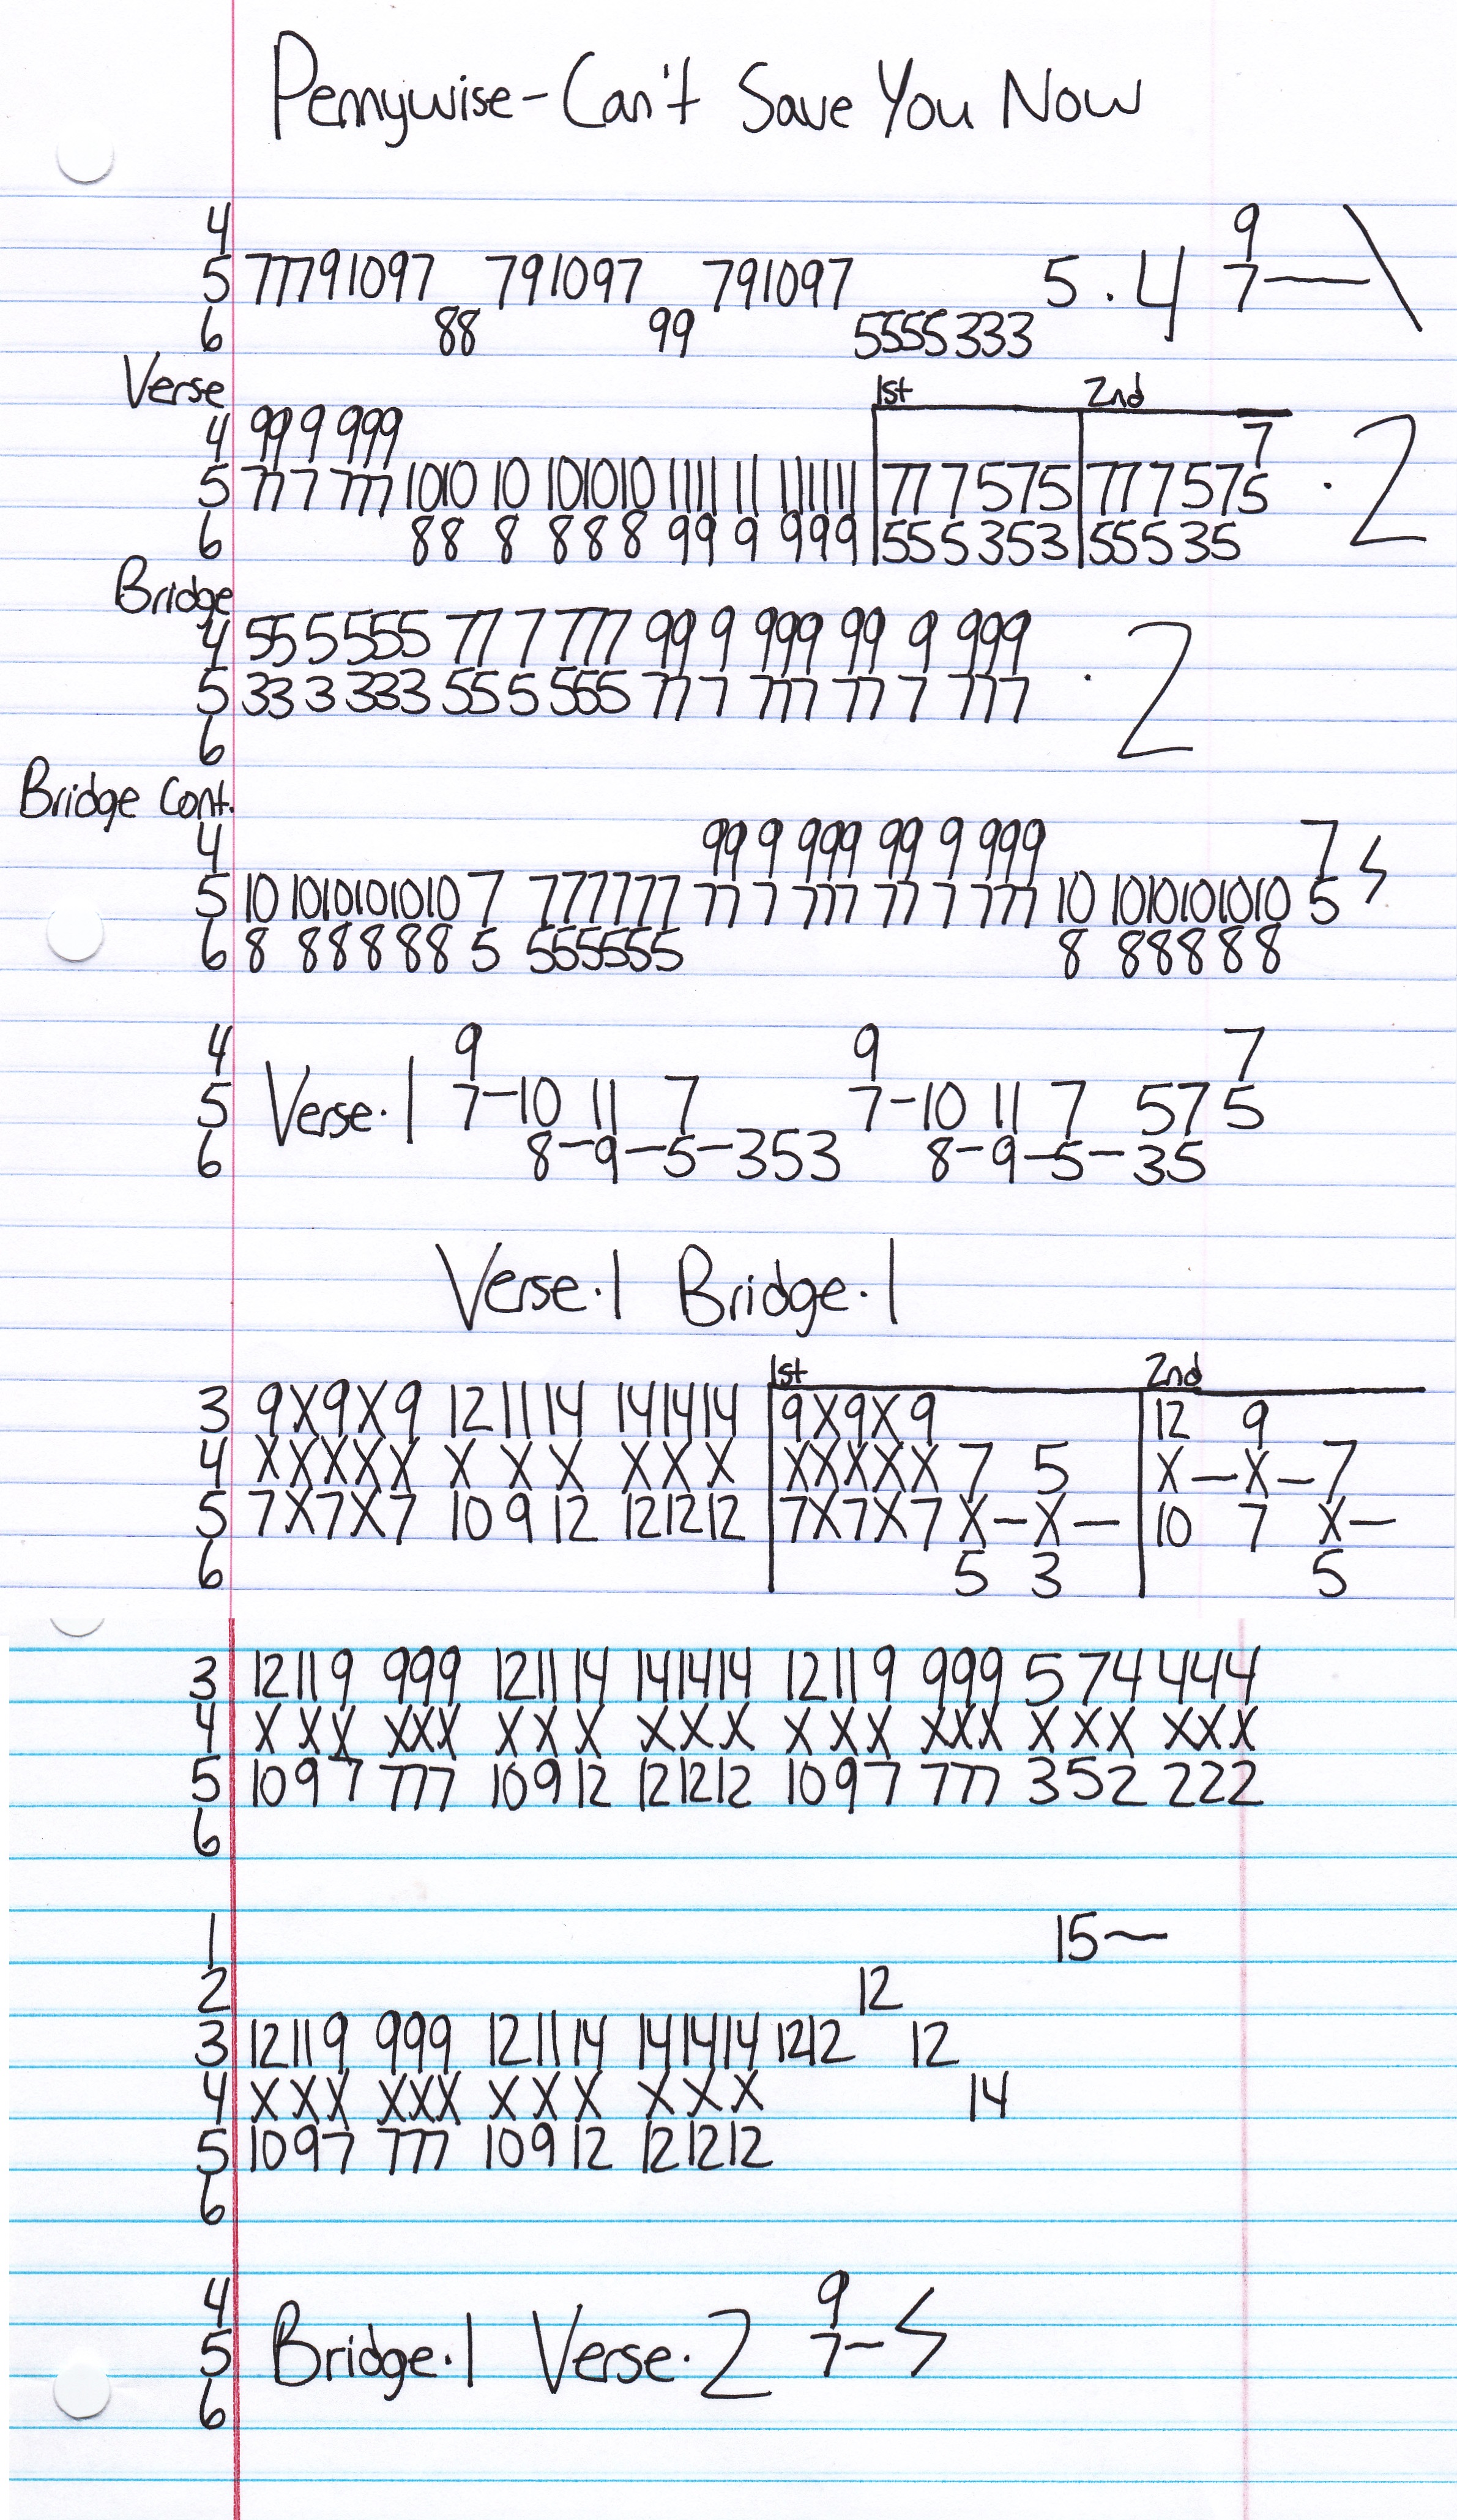 Pennywise-Can't Save You Now
4 9
5 77791097 791097 791097 5 . 4 7—\
6 88 99 5555333
Verse 1st 2nd
4 99 9 999 7
5 77 7 777 1010 10 101010 1111 11 111111 77 7 575 77 7 575 . 2
6 88 8 888 99 9 999 555353 55535
Bridge
4 55 5 555 77 7 777 99 9 999 99 9 999
5 33 3 333 55 5 555 77 7 777 77 7 777 . 2
6
Bridge Cont.
4 99 9 999 99 9 999 7
5 10 1010101010 7 777777 77 7 777 77 7 777 10 1010101010 5
6 8 88888 5 555555 8 88888
4 9 9 7
5 Verse.1 7-10 11 7 7-10 11 7 57 5
6 8-9-5-353 8-9-5-35
Verse.1 Bridge.1
1st 2nd
3 9X9X9 12 11 14 14 14 14 9X9X9 12 9
4 XXXXX X X X X X X XXXXX 7 5 X-X-7
5 7X7X7 10 9 12 12 12 12 7X7X7 X-X- 10 7 X-
6 5 3 5
3 12 11 9 999 12 11 14 14 14 14 12 11 9 999 5 7 4 4 4 4
4 X X X XXX X X X X X X X X X XXX X X X X X X
5 10 9 7 777 10 9 12 12 12 12 10 9 7 777 3 5 2 2 2 2
6
1 15~
2 12
3 12 11 9 999 12 11 14 14 14 14 12 12 12
4 X X X XXX X X X X X X 14
5 10 9 7 777 10 9 12 12 12 12
6
4 9
5 Bridge.1 Verse.2 7-
6